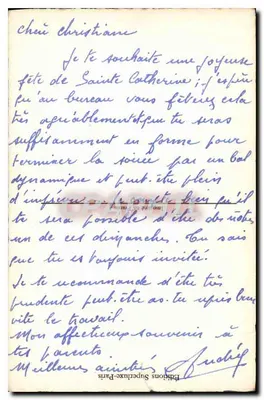 chère christiane
Je te souhaite une joyeuse
fête de Sainte Catherine ; j'espère
qu'au bureau vous fêterez cela
très agréablement et que tu seras
suffisamment en forme pour
terminer la soirée par un bal
dynamique et peut-être plein
d'imprévu. qu'il
te sera possible d'être des nôtres
un de ces dimanches. Tu sais
que tu es toujours invitée.
Je te recommande d'être très
prudente peut-être as-tu repris
vite le travail.
Mon affectueux souvenir à
tes parents.
Meilleures amitiés
Editions Superluxe-Paris